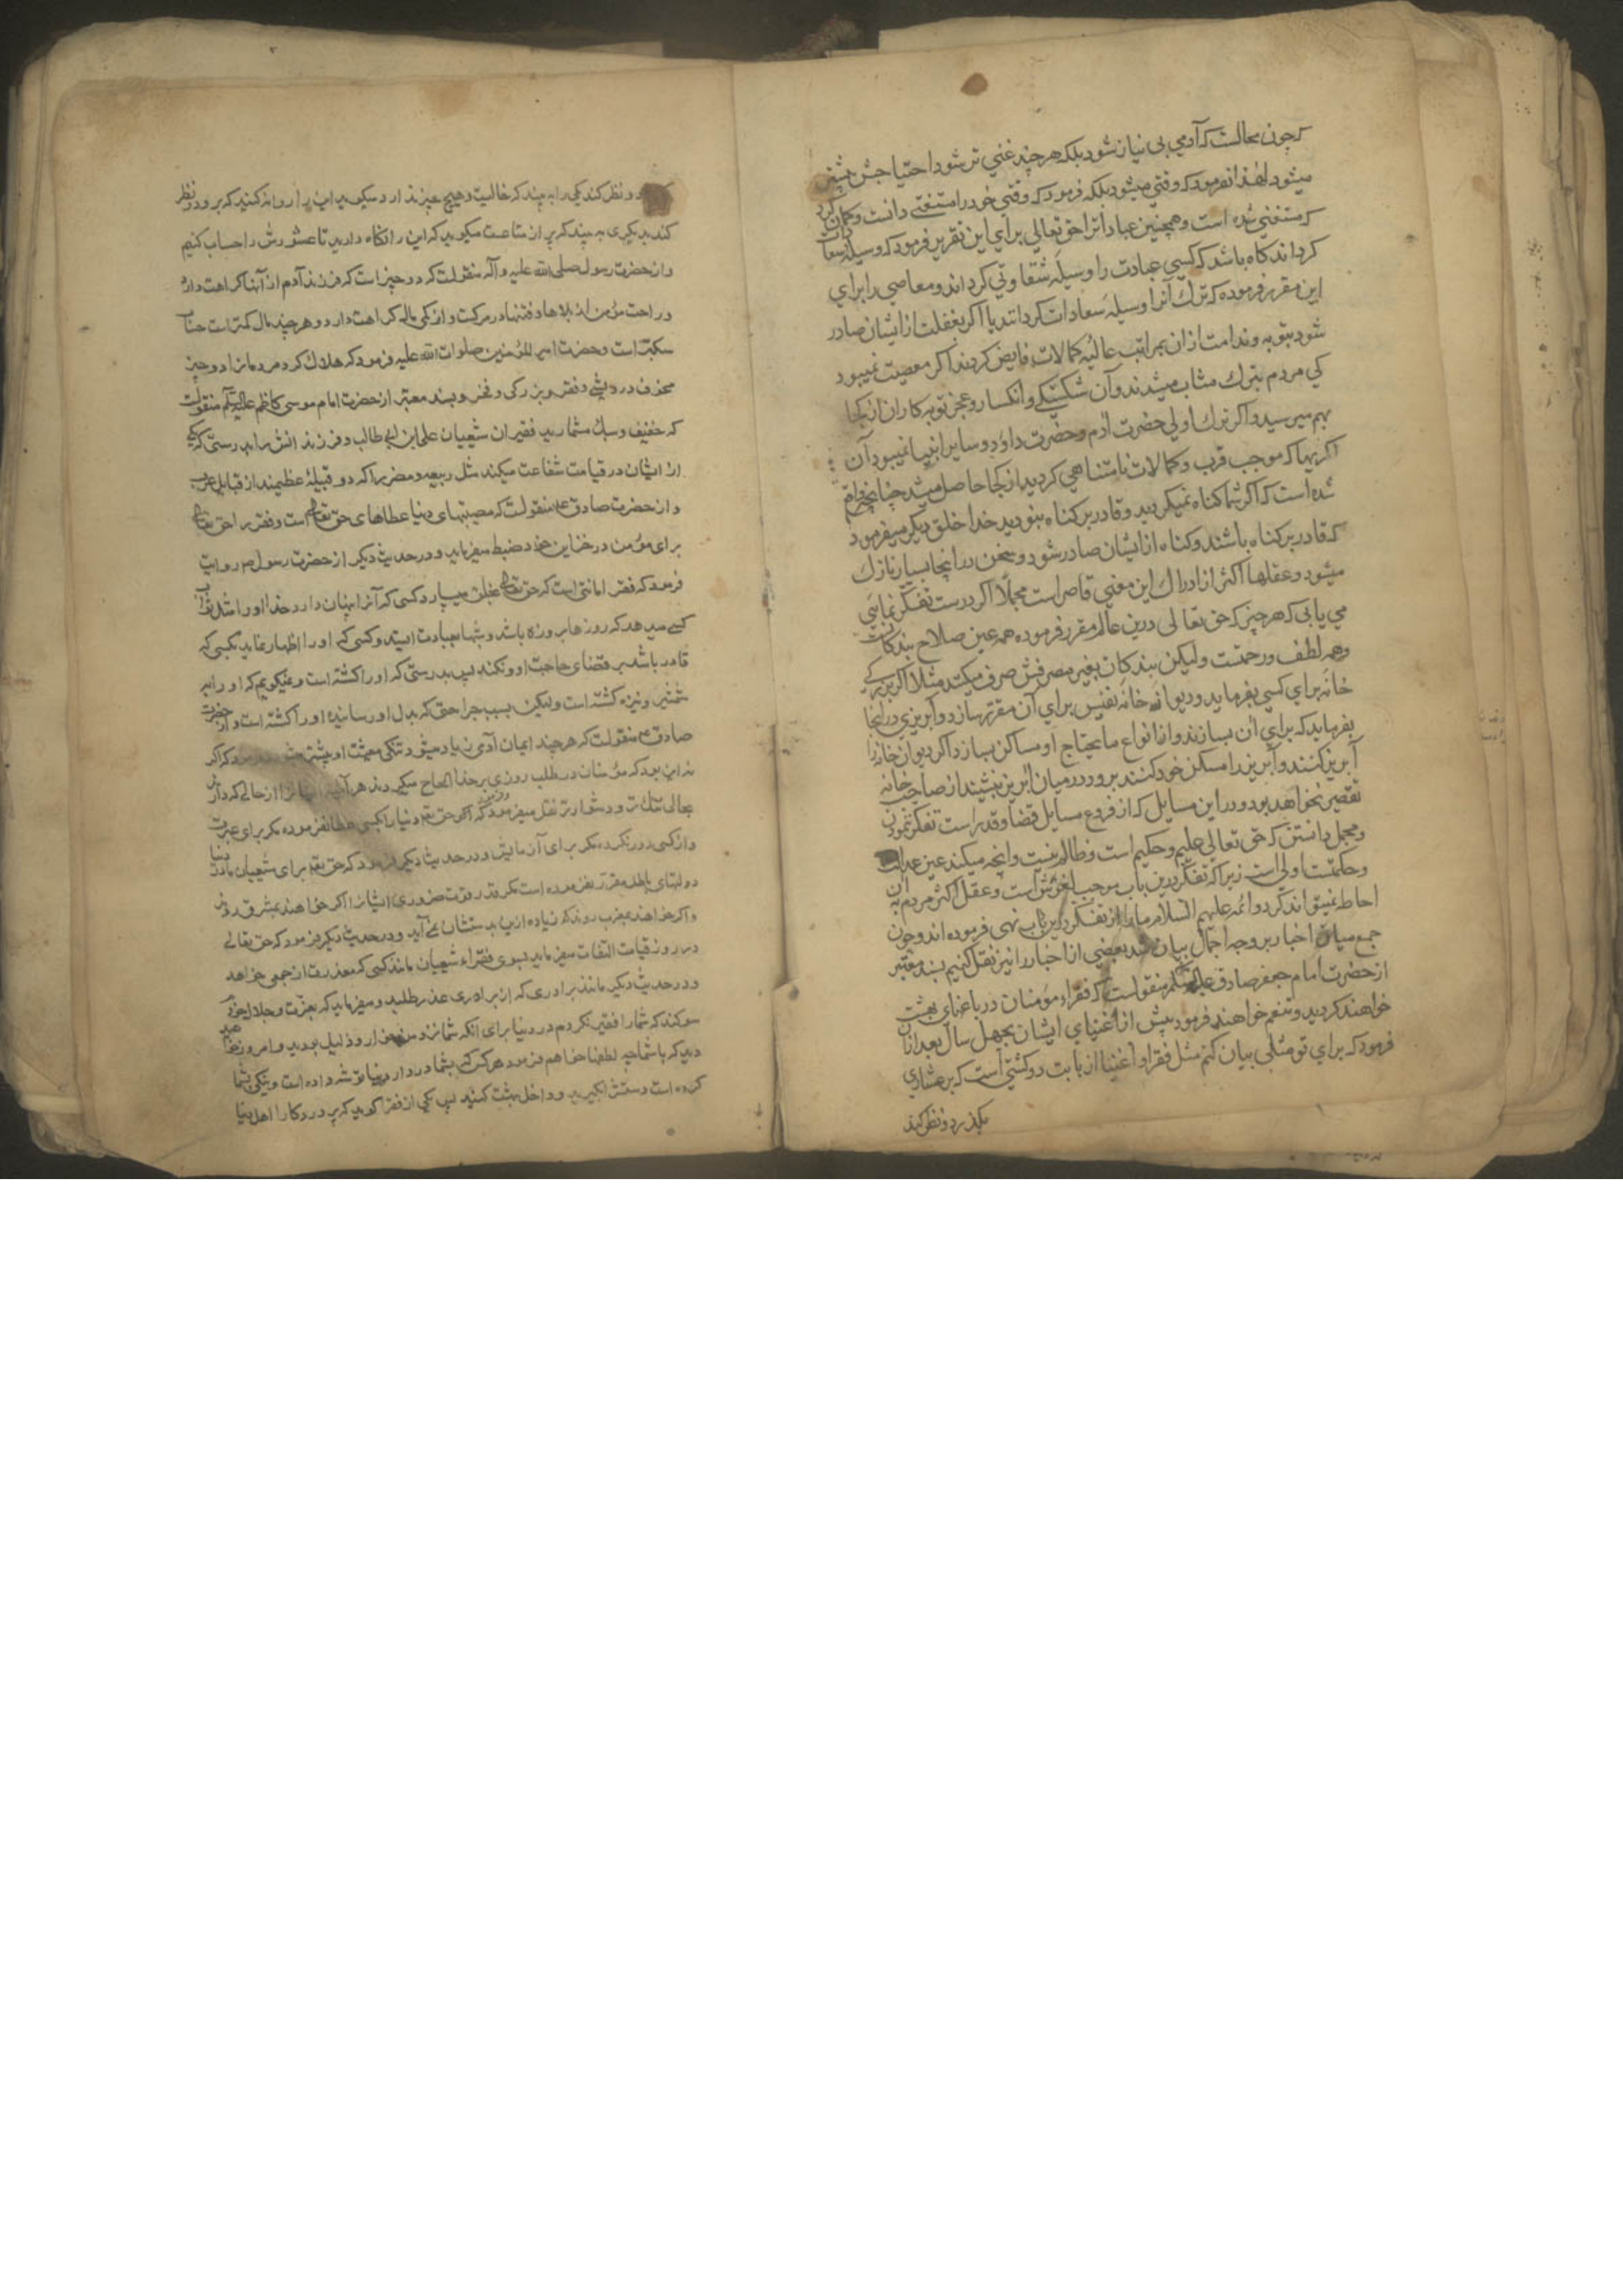 که چون محالست که آدمی بی نیاز شود بلکه هر چند غنی تر شود احتیاجش بیشتر
میشود لهذا نفرمود که وقتی میشود بلکه فرمود که وقتی خود را مستغنی دانست و کمان کرد
که مستغنی شده است و همچنین عبادات را حق تعالی برای این تقریر فرمود که وسیله سعادات
کرداند کاه باشد که کسی عبادت را وسیله شقاوتی کرداند و معاصی را برای
این مقرر فرموده که ترك آنرا وسیله سعادات کردانند یا اکر بغفلت از ایشان صادر
شود بتوبه و ندامت ازان بمراتب عالیه کمالات فایض کردند اکر معصیت نمیبود
کی مردم بترك مثاب میشدند و آن شکستکی و انکسار و عجز توبه کاران از کجا
بهم میرسید و اکر ترك اولی حضرت آدم و حضرت داود و سایر انبیا نمیبود آن
کریهها که موجب قرب و کمالات نامتناهی کردید از کجا حاصل میشد چنانچه وارد
شده است که اکر شما کناه نمیکردید و قادر بر کناه نبودید خدا خلق دیکر میفرمود
که قادر بر کناه باشند و کناه از ایشان صادر شود و سخن در اینجا بسیار نازك
میشود و عقلها اکثر از ادراك این معنی قاصر است مجملا اکر درست تفکر نمایی
می یابی که هر چیز که حق تعالی درین عالم مقرر فرموده همه عین صلاح بندکانست
و همه لطف و رحمتست ولیکن بندکان بغیر مصرفش صرف میکنند مثلا اکر بزرکی
خانه برای کسی بفرماید و دیوانخانه نفیس برای آن مقرر سازد و آبریزی در اینجا
بفرماید که برای آن بسازند و از انواع مایحتاج او مساکن بسازد اکر دیوان خانه را
آبریز کنند و آبریز را مسکن خود کنند برود در میان آبریز بنشیند از صاحب خانه
تقصیر نخواهد بود و در این مسایل که از فروع مسایل قضا و قدر است تفکر ننمودن
و مجمل دانستن که حق تعالی علیم و حکیم است و ظالم نیست و آنچه میکند عین عدالت
و حکمتست اولی است زیرا که تفکر درین باب موجب لغزش است و عقل اکثر مردم به آن
احاطه نمیتواند کرد و ائمه علیهم السلام ما را از تفکر درین باب نهی فرموده اند و چون
جمع میان اخبار بر وجه اجمال بیان شد بعضی از اخبار را نیز نقل کنیم بسند معتبر
از حضرت امام جعفر صادق علیه السلام منقولست که فقراء مؤمنان در باغهای بهشت
خواهند کردید و تنعم خواهند فرمود پیش از اغنیای ایشان بچهل سال بعد ازان
فرمود که برای تو مثلی بیان کنم مثل فقرا و اغنیا از بابت دو کشتی است که بر عشاری
بکذرد و نظر کند
و نظر کند یکی را به بیند که خالیست و هیچ چیز ندارد میکوید این را روانه کنید که برود و نظر
کند دیکری به بیند که پر از متاعست میکوید که این را نکاه دارید تا عشورش را حساب کنیم
و از حضرت رسول صلی الله علیه و آله منقولست که دو چیز است که فرزند آدم از آنها کراهت دارد
و راحت مؤمن از بلاها و فتنها در مرکست و از کمی مال کراهت دارد و هر چند مال کمتر است حساب
سبکتر است و حضرت امیر المؤمنین صلوات الله علیه فرمود که هلاك کرد مردمانرا دو چیز
خوف درویشی و فقر و بزرکی و فخر و بسند معتبر از حضرت امام موسی کاظم علیه السلام منقولست
که خفیف و سبك مشمارید فقیران شیعیان علی ابن ابی طالب و فرزندانش را بدرستی که یکی
از ایشان در قیامت شفاعت میکند مثل ربیعه و مضر را که دو قبیلهٔ عظیمند از قبایل عرب
و از حضرت صادق ع منقولست که مصیبتهای دنیا عطاهای حق تعالی است و فقر را حق تعالی
برای مؤمن در خزاین خود ضبط میفرماید و در حدیث دیکر از حضرت رسول ص روایت
فرمود که فقر امانتی است که حق تعالی بخلق میسپارد کسی که آنرا پنهان دارد خدا او را مثل ثواب
کسی میدهد که روزها بروزه باشد و شبها بعبادت ایستد و کسی که او را اظهار نماید بکسی که
قادر باشد بر قضای حاجت او و نکند پس بدرستی که او را کشته است و نمیکویم که او را بر
شمشیر و نیزه کشته است ولیکن بسبب جراحتی که بدل او رسانیده او را کشته است و از حضرت
صادق ع منقولست که هر چند ایمان آدمی زیاد میشود تنکی معیشت او بیشتر میشود و فرمود که اکر
نه این بود که مؤمنان در طلب روزی بر خدا الحاح میکردند هر آینه ایشانرا از حالی که دارند
بحالی تنك تر و دشوارتر نقل میفرمود و فرمود که حق تعالی دنیا را بکسی عطا نفرموده مکر برای عبرت
و از کسی دور نکرده مکر برای آزمایش و در حدیث دیکر فرمود که حق تعالی برای شیعیان ما در دنیا
دولتهای باطله مقرر نفرموده است مکر قدر قوت ضروری ایشانرا اکر خواهند بمشرق روند
و اکر خواهند بمغرب روند که زیاده ازین بدستشان نمی آید و در حدیث دیکر فرمود که حق تعالی
در روز قیامت التفات میفرماید بسوی فقراء شیعیان مانند کسی که معذرت از جمعی خواهد
و در حدیث دیکر مانند برادری که از برادری عذر طلبد و میفرماید که بعزت و جلال خود
سوکند که شما را فقیر نکردم در دنیا برای آنکه شما نزد من خوار و ذلیل بودید و امروز خواهید
دید که با شما چه لطفها خواهم فرمود هر کس که بشما در دار دنیا توشه داده است و نیکی بشما
کرده است دستش بکیرید و داخل بهشت کنید پس یکی از فقرا کوید که پروردکارا اهل دنیا